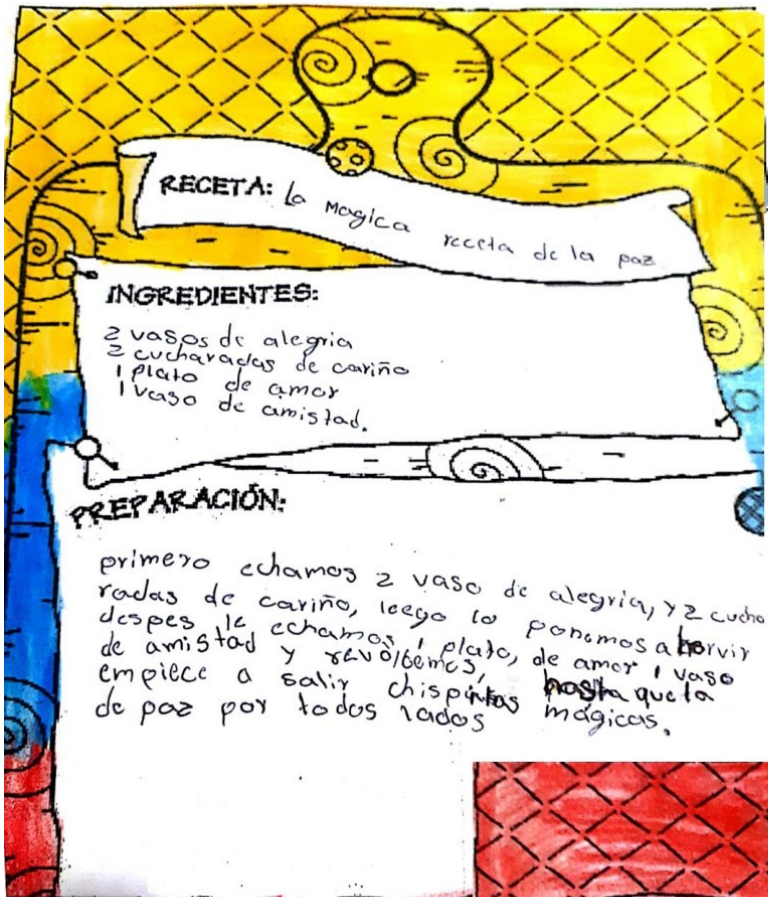 RECETA: La magica receta de la paz
INGREDIENTES:
2 vasos de alegria
2 cucharadas de cariño
1 plato de amor
1 vaso de amistad.
PREPARACIÓN:
primero echamos 2 vaso de alegria, y 2 cucha
radas de cariño, leego lo ponemos a hervir
despes le echamos 1 plato, de amor 1 vaso
de amistad y revolbemos, hasta que la
empiece a salir chispitas mágicas.
de paz por todos lados